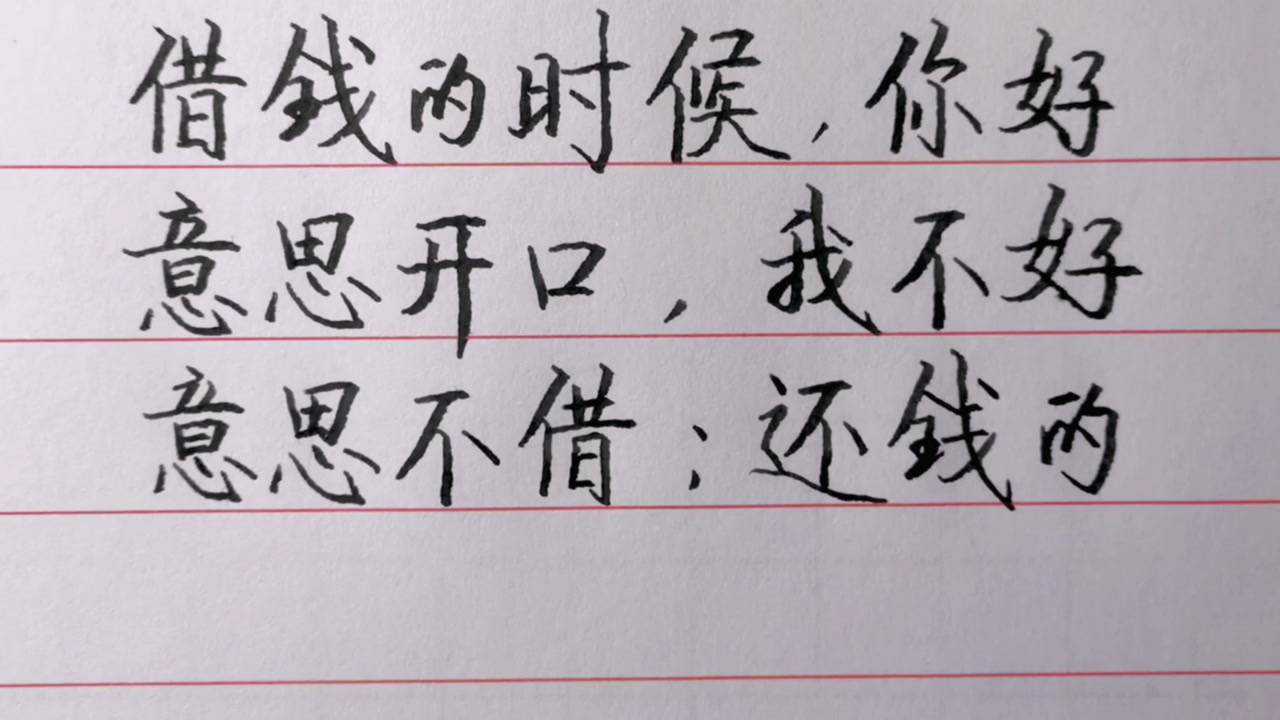 借钱的时候，你好
意思开口，我不好
意思不借；还钱的